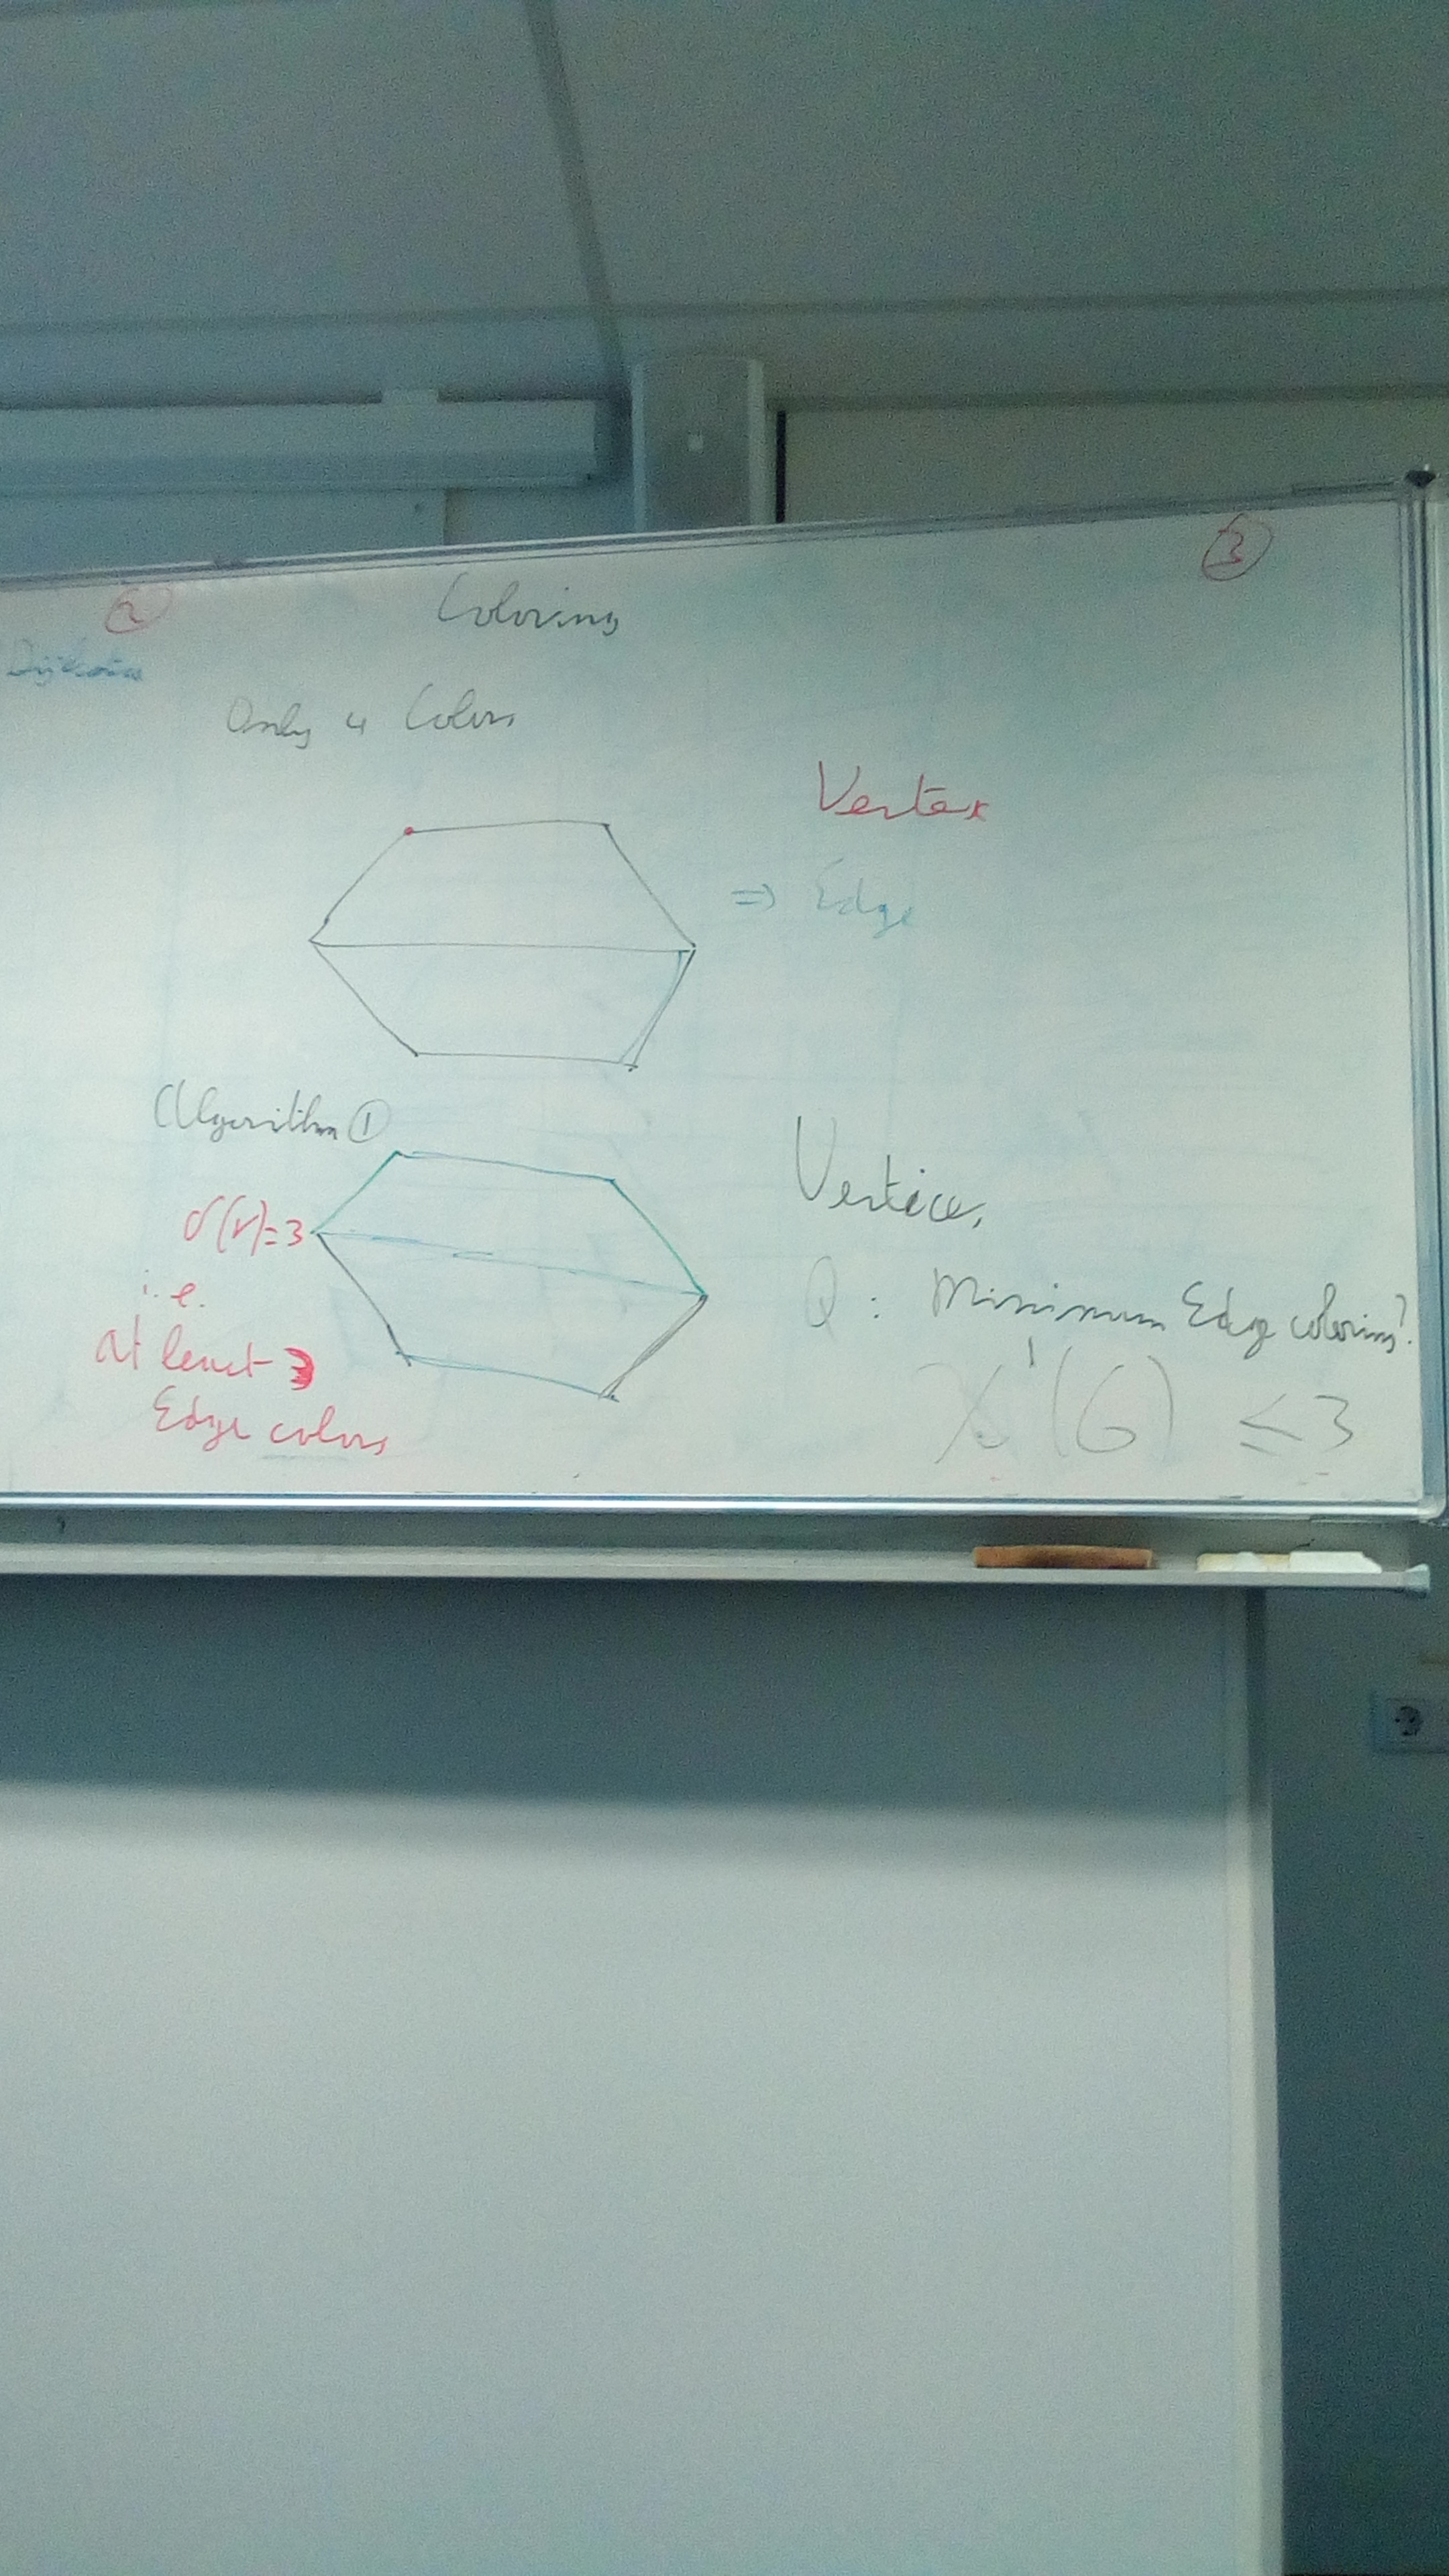 2
3
Coloring
Dijkstra
Only 4 Colors
Vertex
⇒ Edge
Algorithm ①
Vertices,
δ(v)=3
i.e.
at least 3
Edge colors
Q: Minimum Edge coloring?
χ'(G) ≤3